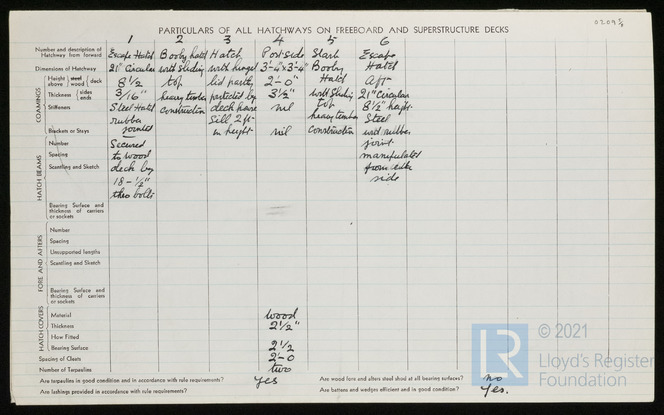 0209 5/8
PARTICULARS OF ALL HATCHWAYS ON FREEBOARD AND SUPERSTRUCTURE DECKS
1 2 3 4 5 6
Number and description of Hatchway from forward
Dimensions of Hatchway
COAMINGS
Height above deck steel wood
Thickness sides ends
Stiffeners
Brackets or Stays
HATCH BEAMS
Number
Spacing
Scantling and Sketch
Bearing Surface and thickness of carriers or sockets
FORE AND AFTERS
Number
Spacing
Unsupported lengths
Scantling and Sketch
Bearing Surface and thickness of carriers or sockets
HATCH COVERS
Material
Thickness
How Fitted
Bearing Surface
Spacing of Cleats
Number of Tarpaulins
Escape Hatch
21" Circular
8 1/2
3/16"
Steel Hatch
rubber
jointed
Secured
to wood
deck by
18 - 1/2"
thro bolts
Booby hatch
with sliding
top
heavy timber
construction
Hatch
with hinged
lid partly
protected by
deck house
Sill 2 ft
in height
Port side
3'-4" x 3'-4"
2'-0"
3 1/2"
nil
nil
wood
2 1/2"
2 1/2
2'-0
two
Starb
Booby
Hatch
with sliding
top
heavy timber
construction
Escape
Hatch
Aft
21" Circular
8 1/2" height
Steel
with rubber
joint
manipulated
from either
side
Are tarpaulins in good condition and in accordance with rule requirements? Yes
Are wood fore and afters steel shod at all bearing surfaces? no
Are lashings provided in accordance with rule requirements?
Are battens and wedges efficient and in good condition? Yes.
LR
© 2021
Lloyd's Register
Foundation